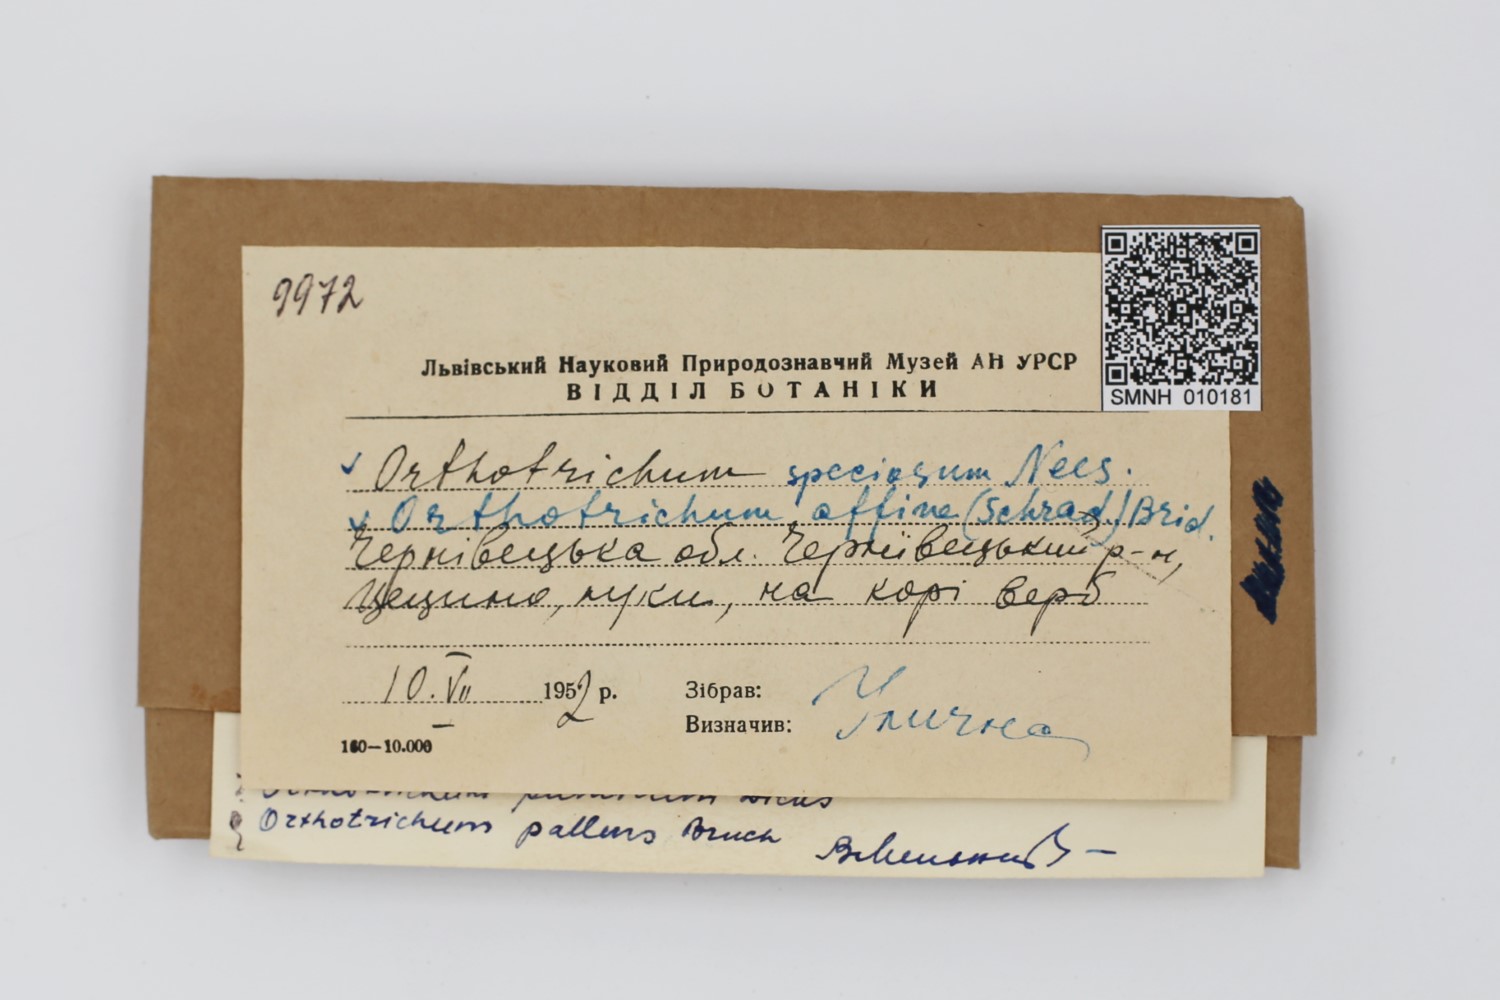 9972
SMNH 010181
Львівський Науковий Природознавчий Музей АН УРСР
ВІДДІЛ БОТАНІКИ
✓ Orthotrichum speciosum Nees.
✓ Orthotrichum affine (Schrad.) Brid.
Чернівецька обл. Чернівецький р-н,
Цецино, луки, на корі верб
10.VII 1952 р.
Зібрав:
Визначив: Улична
160—10.000
Orthotrichum pumilum Dicks
Orthotrichum pallens Bruch